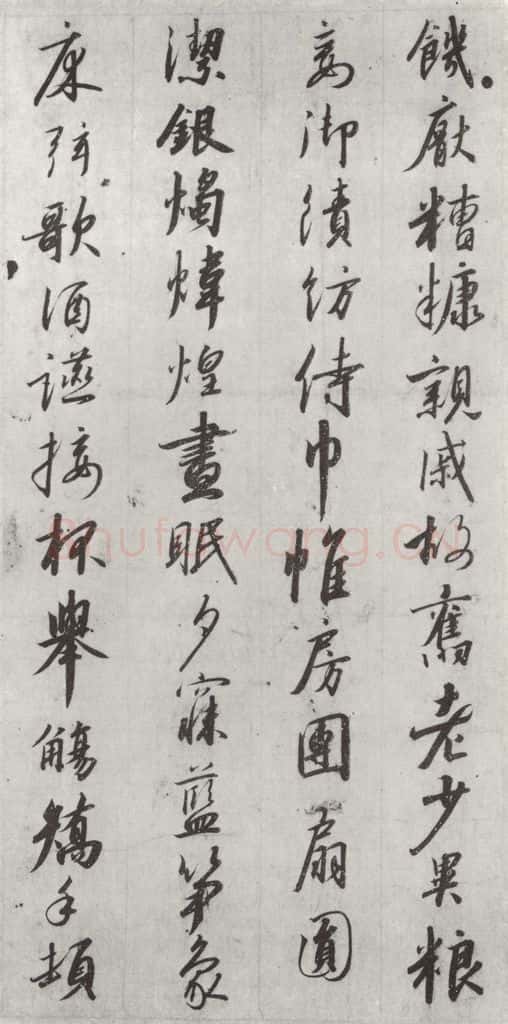 饑厭糟糠親戚故舊老少異粮
妾御績紡侍巾帷房團扇圓
潔銀燭煒煌晝眠夕寐藍笋象
床弦歌酒讌接杯舉觴矯手頓
Shufawang.CN